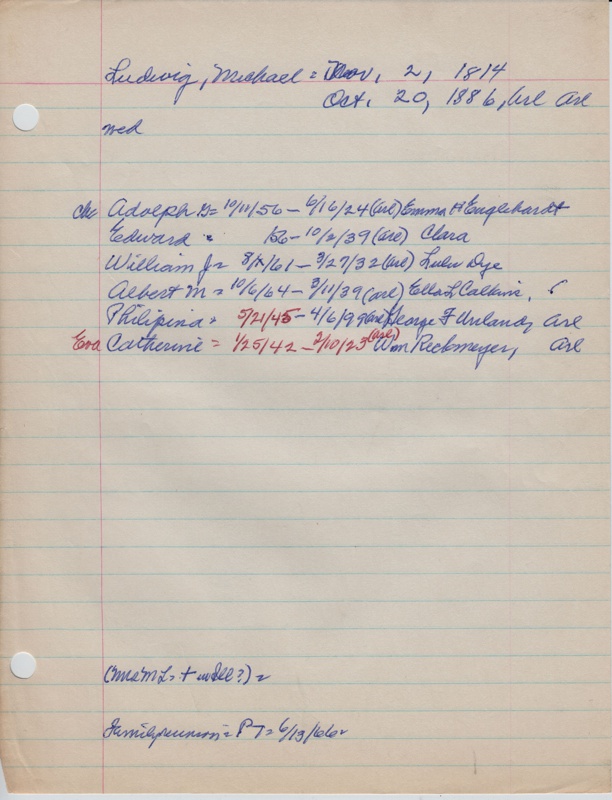 Ludwig, Michael = Nov, 2, 1814
Oct. 20, 1886, Arl Arl
wed
Ch= Adolph G= 10/11/56 – 6/16/24 (Arl) Emma H Englehardt
Edward = – 10/2/39 (Arl) Clara
William J= /61 – 3/27/32 (Arl) Lulu Dye
Albert M = 10/6/64 – 3/11/39 (Arl) Ella L Calkins,
Philipina = 5/21/45 – 4/6/99 (Arl) George F Unland, Arl
Eva Catherine = 1/25/42 – 2/10/23 (Arl) Wm Reckmeyer, Arl
(Mrs M L = + in Ill?) =
Family reunion = P T = 6/19/66